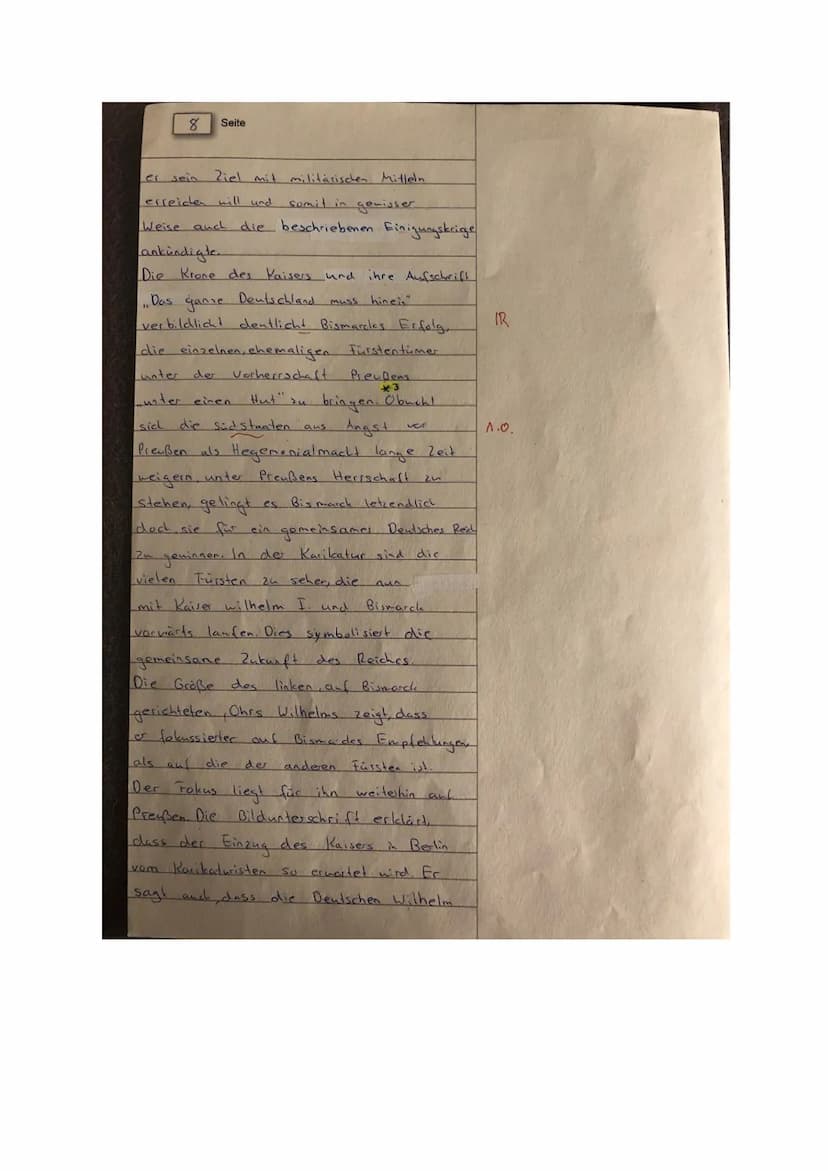 8 Seite
er sein Ziel mit militärischen Mitteln
erreichen will und somit in gewisser
Weise auch die beschriebenen Einigungskriege
ankündigte.
Die Krone des Kaisers und ihre Aufschrift
„Das ganze Deutschland muss hinein"
verbildlicht deutlicht Bismarcks Erfolg,
IR
die einzelnen, ehemaligen Fürstentümer
unter der Vorherrschaft Preußens
*3
„unter einen Hut" zu bringen. Obwohl
sich die Südstaaten aus Angst vor
A.O.
Preußen als Hegemonialmacht lange Zeit
weigern, unter Preußens Herrschaft zu
stehen, gelingt es Bismarck letzendlich
doch, sie für ein gemeinsames Deutsches Reich
zu gewinnen. In der Karikatur sind die
vielen Fürsten zu sehen, die nun
mit Kaiser Wilhelm I. und Bismarck
vorwärts laufen. Dies symbolisiert die
gemeinsame Zukunft des Reiches.
Die Größe des linken, auf Bismarck
gerichteten, Ohrs Wilhelms zeigt, dass
er fokussierter auf Bismarckes Empfehlungen,
als auf die der anderen Fürsten ist.
Der Fokus liegt für ihn weiterhin auf
Preußen. Die Bildunterschrift erklärt,
dass der Einzug des Kaisers in Berlin
vom Karikaturisten so erwartet wird. Er
sagt auch, dass die Deutschen Wilhelm